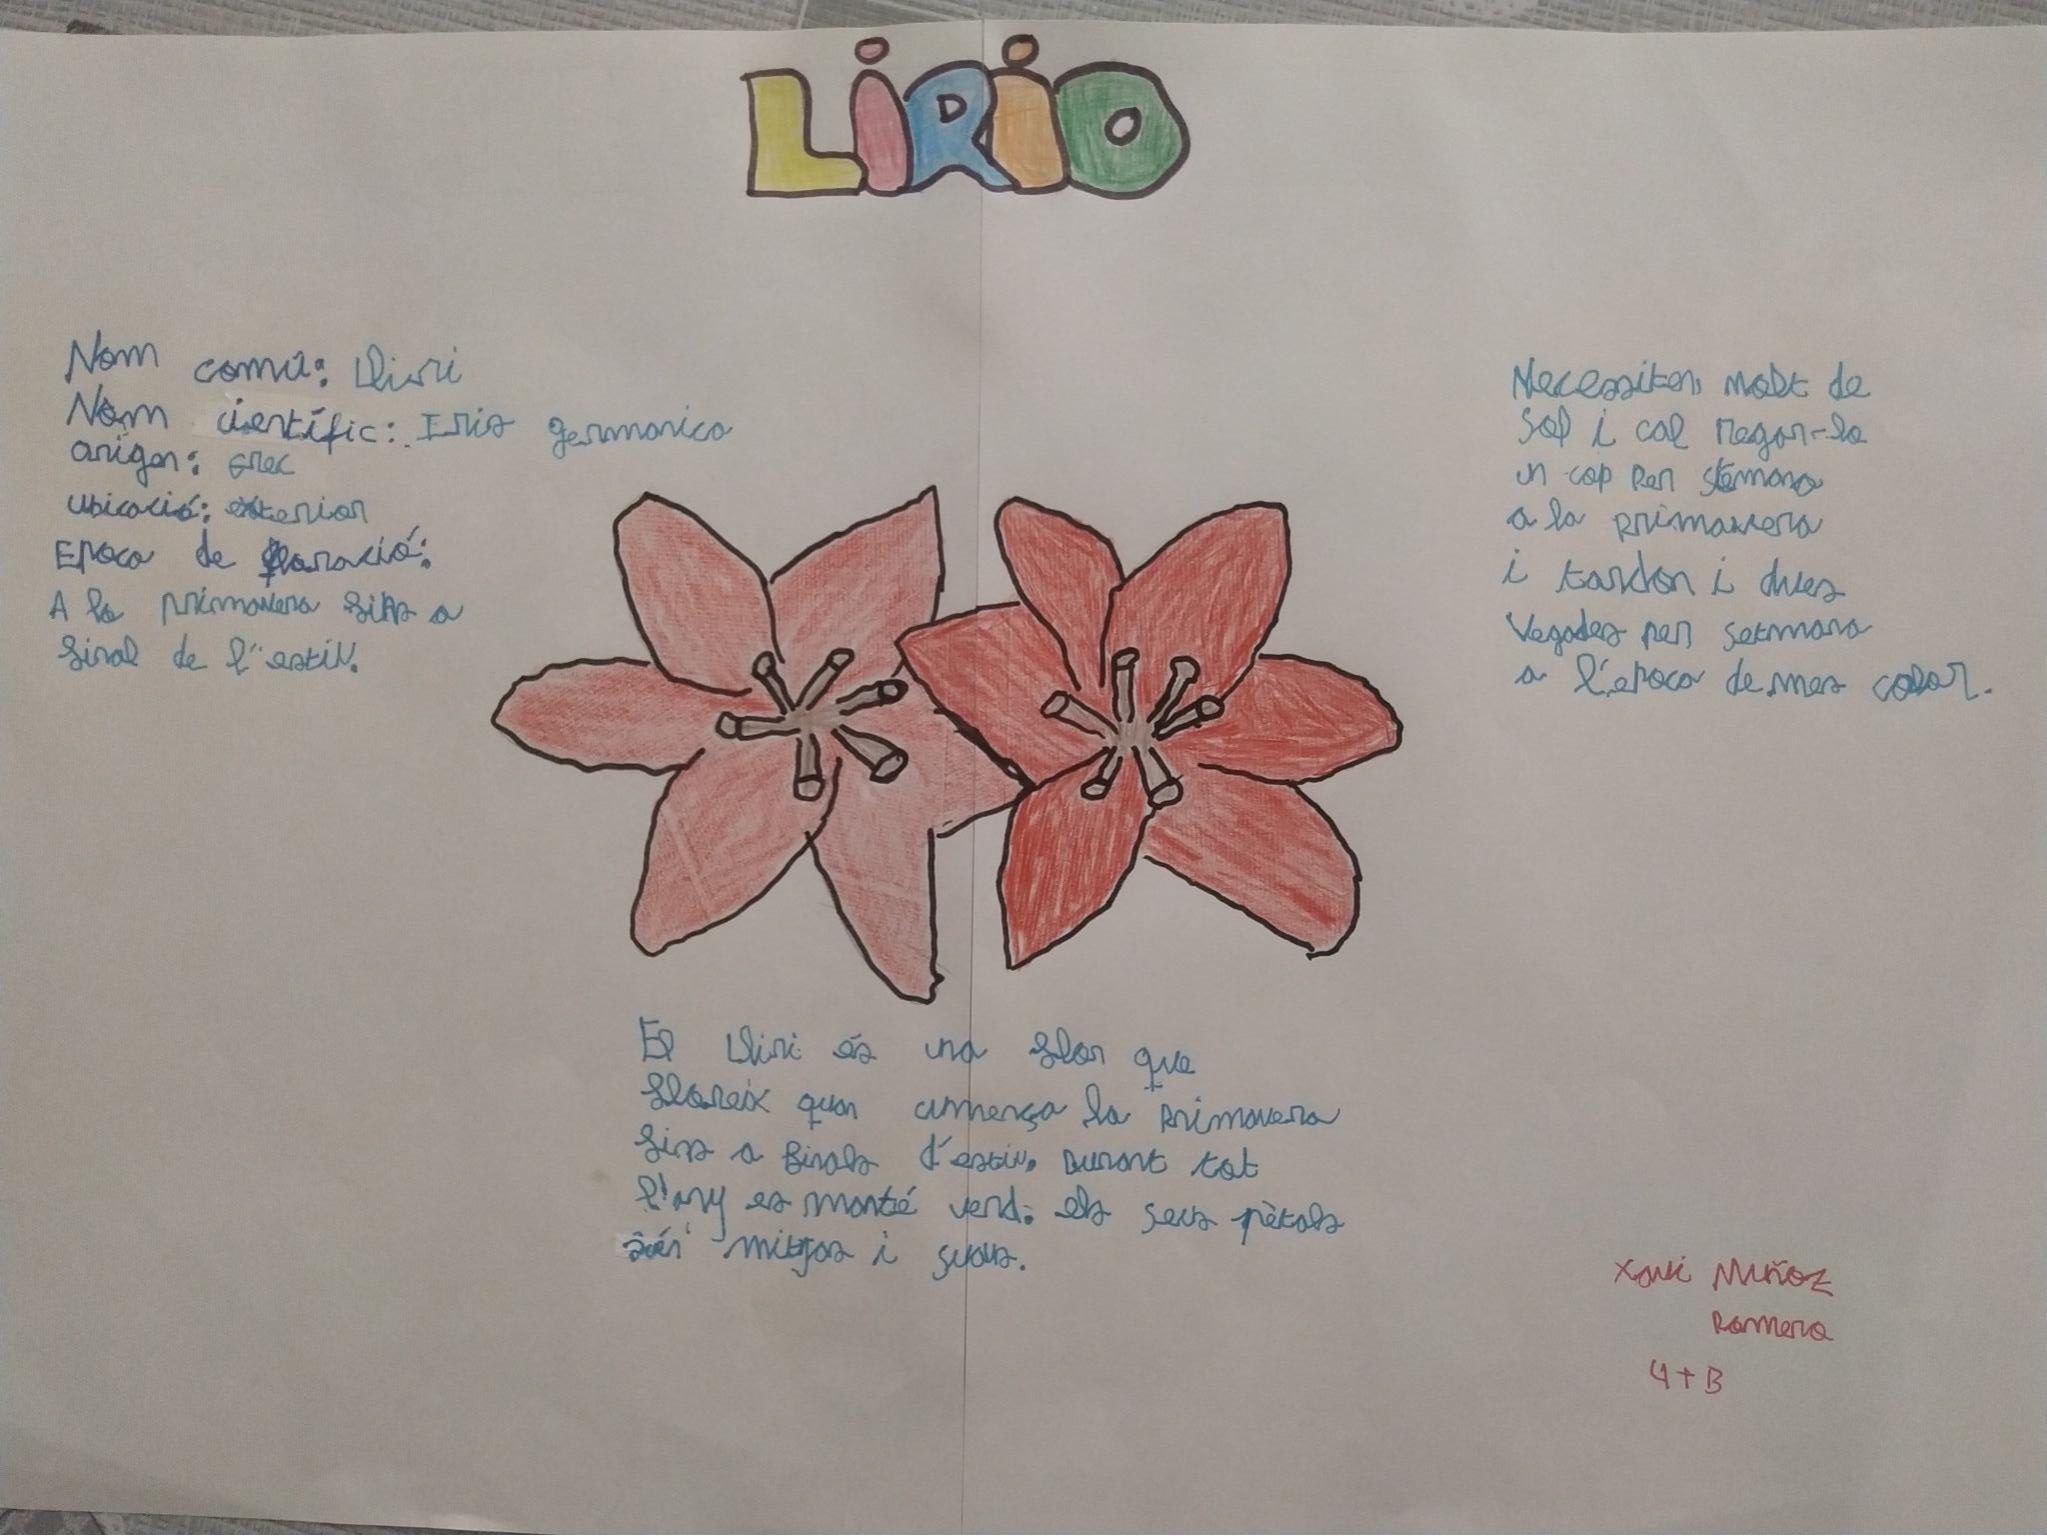 LIRIO
Nom comú: Lliri
Nom científic: Iris germanica
origen: grec
Ubicació: exterior
Epoca de floració:
A la primavera fins a
final de l'estiu.
Necessiten molt de
sol i cal regar-la
un cop per setmana
a la primavera
i tardor i dues
vegades per setmana
a l'epoca de mes calor.
El lliri és una flor que
floreix quan comença la primavera
fins a finals d'estiu. Durant tot
l'any es manté verd. els seus pètals
són mitjos i suaus.
Xavi Muñoz
Romero
4t B